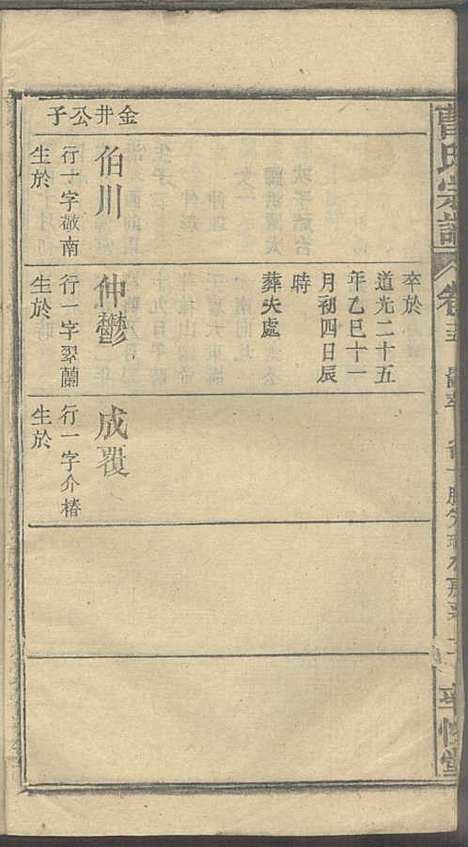 曹氏宗譜
卷五
金井公子
伯川
行十字敬南
生於
卒於
道光二十五
年乙巳十一
月初四日辰
時
葬失處
仲鬱
行一字翠蘭
生於
成覆
行一字介椿
生於